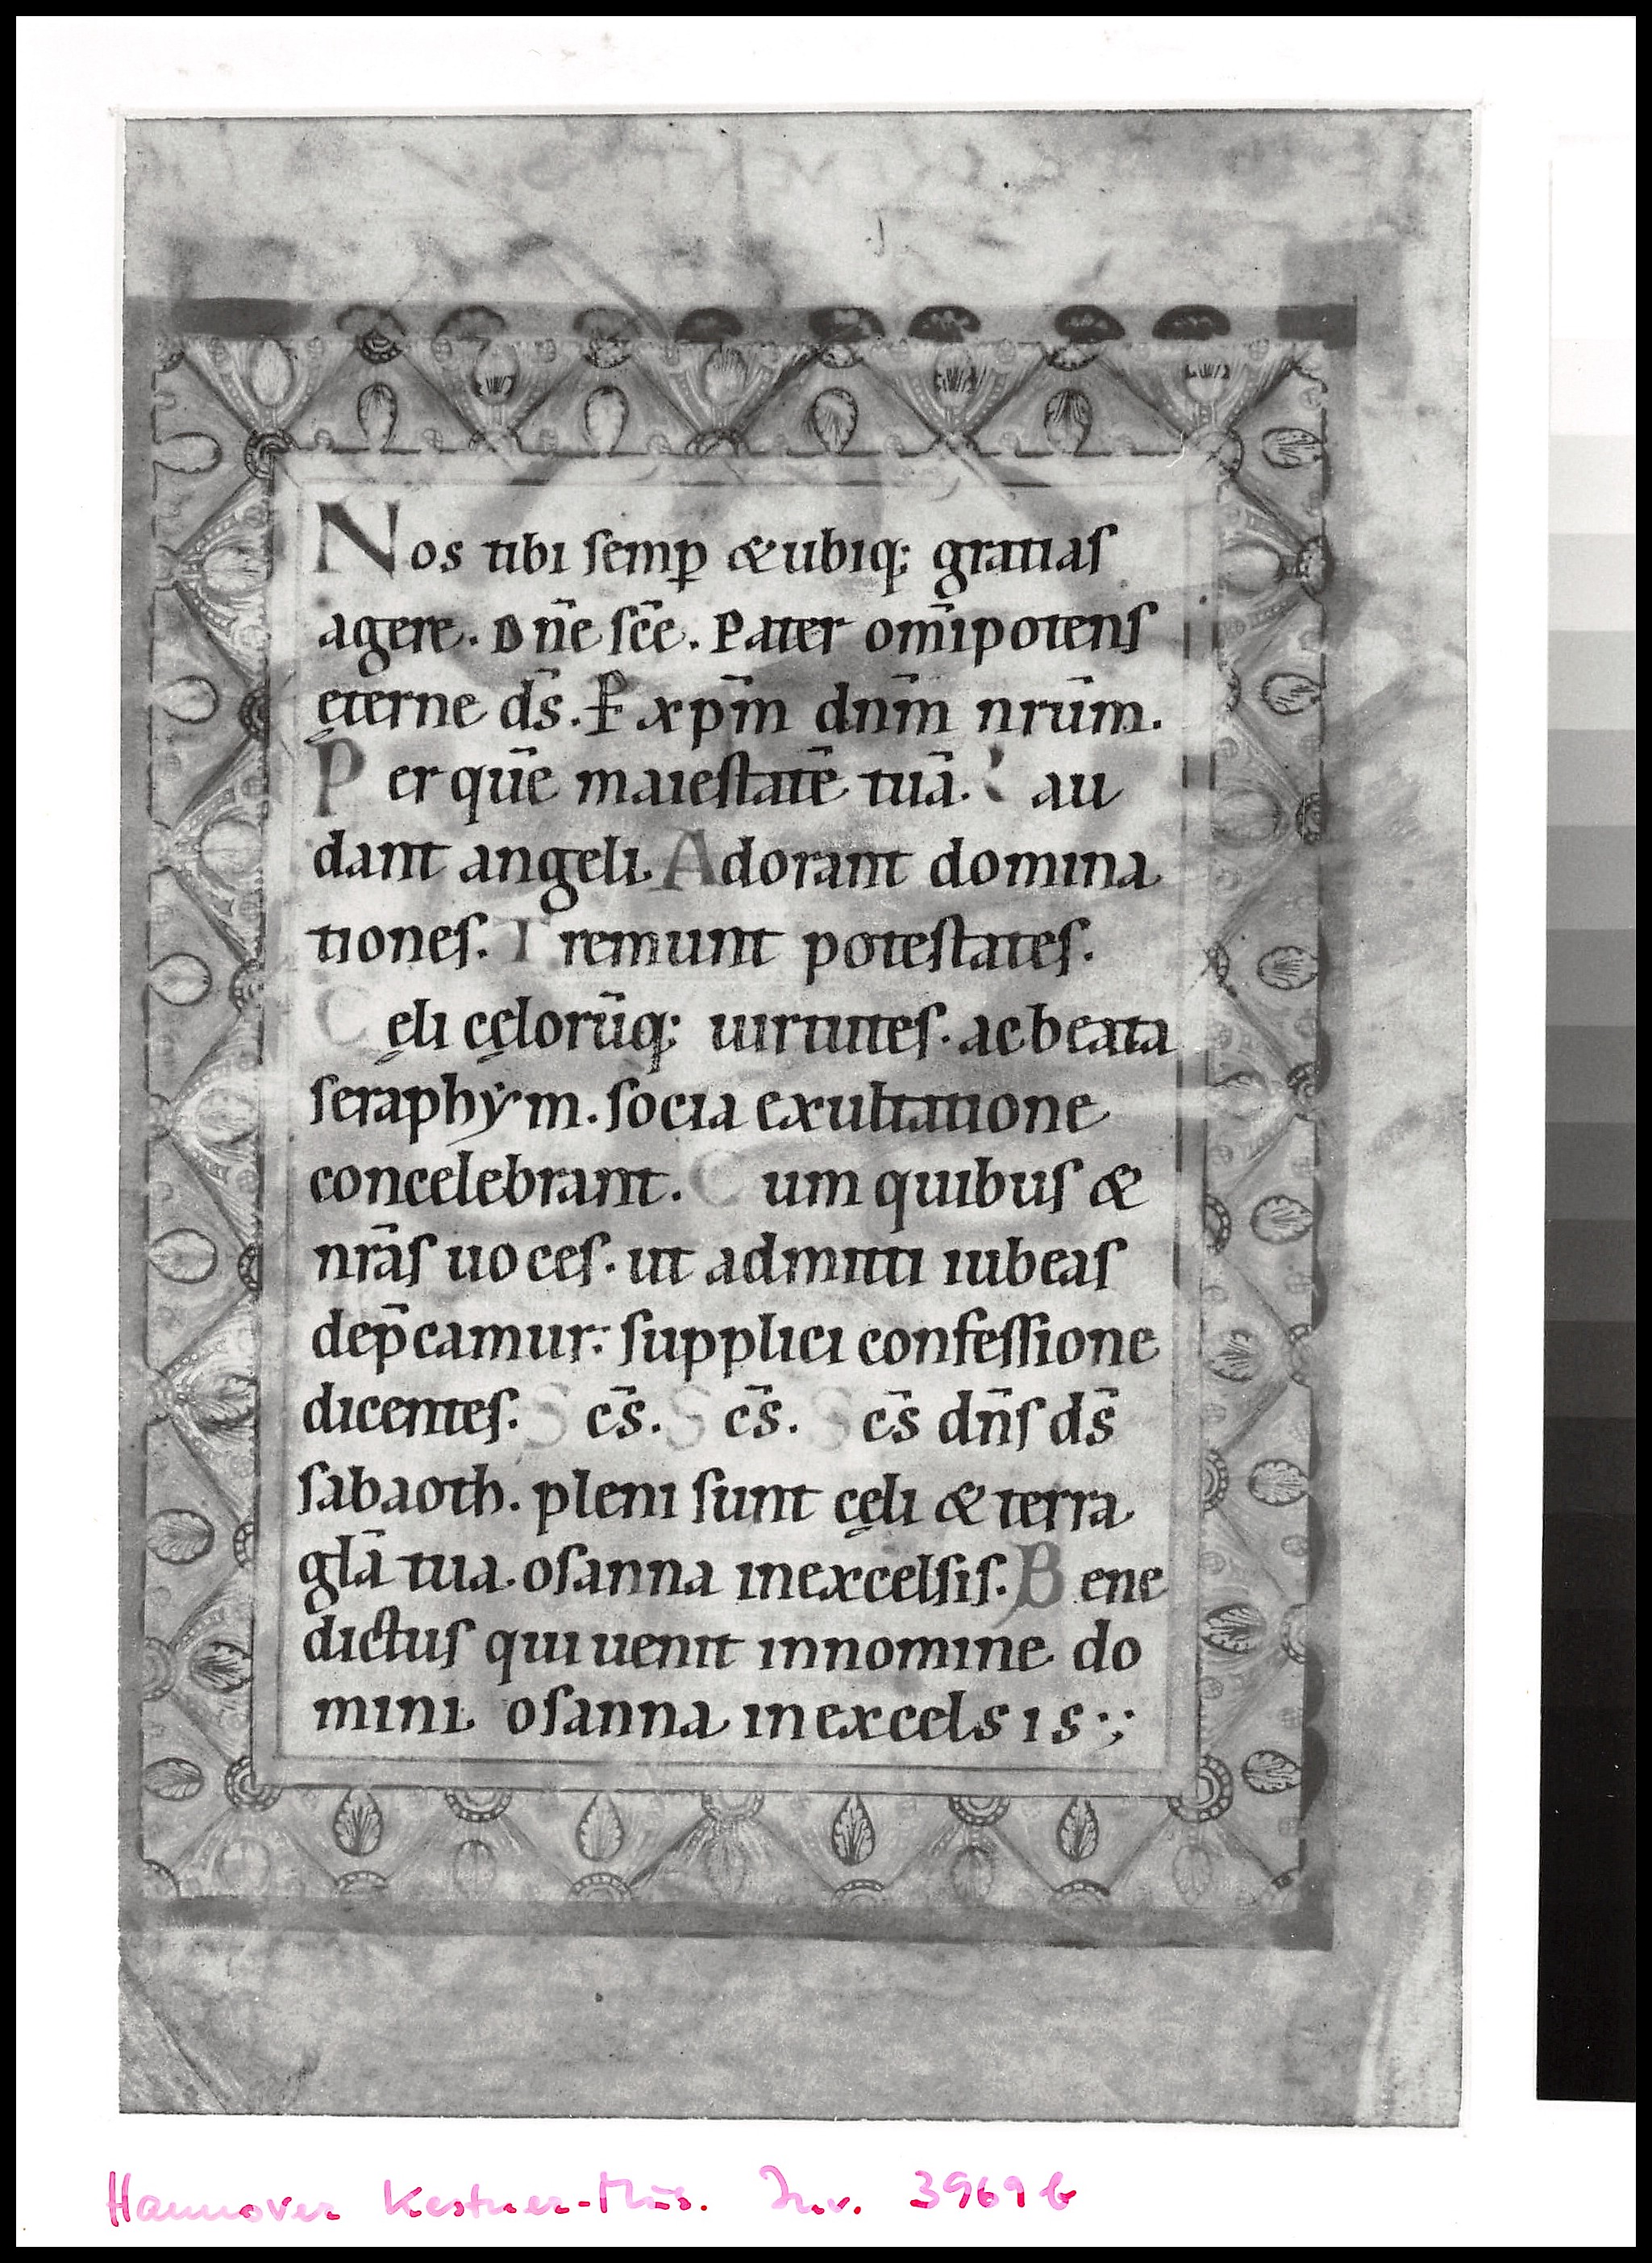 Nos tibi semꝑ & ubiq; gratias
agere. Dn̄e sc̄e. Pater om̄ipotens
ęterne ds̄. P xpm̄ dnm̄ nrūm.
Per quē maiestatē tuā. Lau
dant angeli. Adorant domina
tiones. Tremunt potestates.
Cęli cęlorūq; uirtutes. ac beata
seraphẏm. socia exultatione
concelebrant. Cum quibus &
nrās uoces. ut admitti iubeas
dep̄camur. supplici confessione
dicentes. Scs̄. Scs̄. Scs̄ dn̄s ds̄
sabaoth. pleni sunt cęli & terra
glā tua. osanna inexcelsis. Bene
dictus qui uenit innomine do
mini osanna inexcelsis·;
Hannover Kestner-Mus. Inv. 3969 b